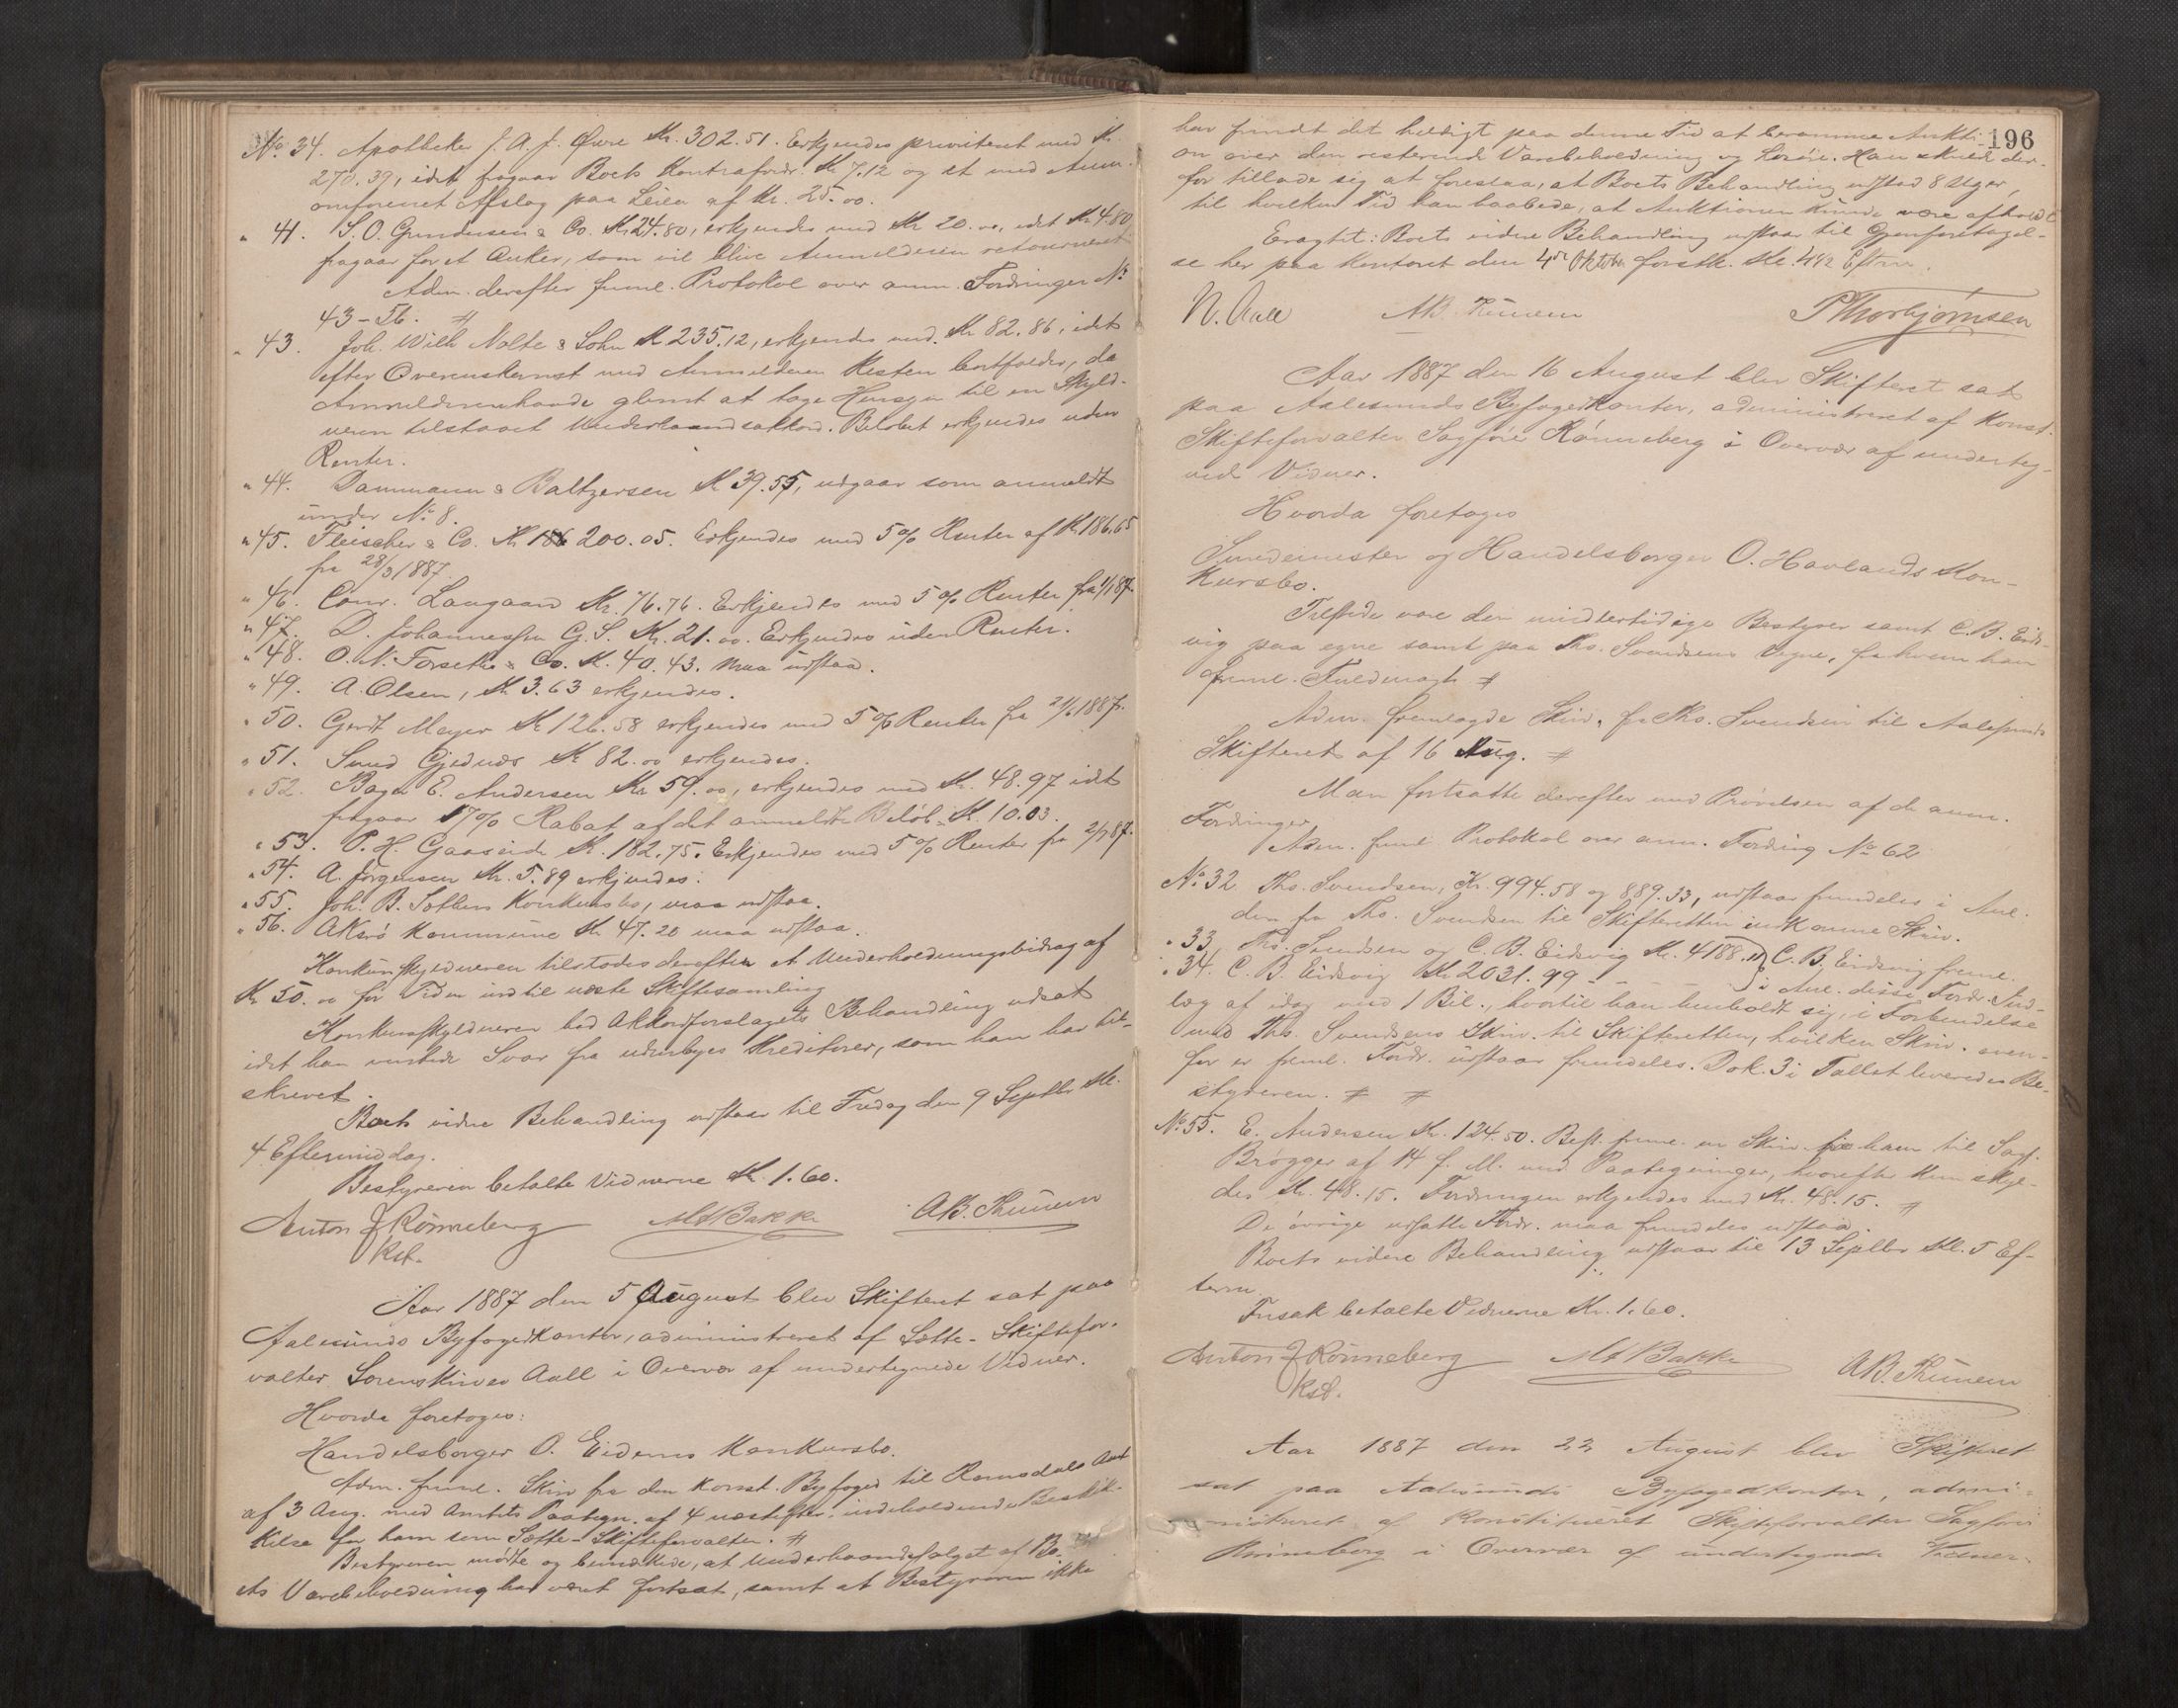 No. 34. Apotheker J. A. J. Øvre Kr. 302.51. Erkjendes prioriteret med Kr.
270.39, idet fragaar Boets Kontrafordr. Kr. 7.12 og et med Anm.
omforenet Afslag paa Leien af Kr. 25.00.
" 41. S. O. Gundersen & Co. Kr. 24.80, erkjendes med Kr. 20.00, idet Kr. 4.80
fragaar for et Anker, som vil blive Anmelderen retourneret
Adm. derefter freml. Protokol over anm. Fordringer No.
43-56. #
" 43. Joh. Wilh Nolte & Sohn M 235.12, erkjendes med Kr. 82.86, idet
efter Overenskomst med Anmelderen Resten bortfalder, da
Anmelderen havde glemt at tage Hensyn til en Skyld-
neren tilstaaet Underhaandsakkord. Beløbet erkjendes uden
Renter.
" 44. Dammann & Baltzersen Kr. 39.55, udgaar som anmeldt
under No. 8.
" 45. Fleischer & Co. Kr. 186 200.05. Erkjendes med 5% Renter af Kr. 186.65
fra 28/3 1887.
" 46. Conr. Langaard Kr. 76.76. Erkjendes med 5% Renter fra 1/1 87.
" 47. D. Johannessen G. S. Kr. 21.00. Erkjendes uden Renter.
" 48. O. N. Forseth & Co. Kr. 40.43. maa udstaa.
" 49. A. Olsen, Kr 3.63 erkjendes.
" 50. Gerdt Meyer Kr 126.58 erkjendes med 5% Renter fra 21/6 1887.
" 51. Smed Gjednæs Kr 82.00 erkjendes.
" 52. Bager E. Andersen Kr. 59.00, erkjendes med Kr. 48.97 idet
fragaar 17% Rabat af det anmeldte Beløb = Kr. 10.03.
" 53. P. H. Gaaseide Kr. 182.75. Erkjendes med 5% Renter fra 2/7 87.
" 54. A. Jørgensen Kr. 5.89 erkjendes.
" 55. Joh. B. Sætters Konkursbo, maa udstaa.
" 56. Akerø Kommune Kr. 47.20 maa udstaa.
Konkursskyldneren tilstodes derefter et Underholdningsbidrag af
Kr 50.00 for Tiden indtil næste Skiftesamling
Konkursskyldneren bad Akkordforslagets Behandling udsat
idet han ventede Svar fra udenbyes Kreditorer, som han har til-
skrevet.
Boets videre Behandling udstaar til Fredag den 9 Septbr Kl.
4 Eftermiddag.
Bestyreren betalte Vidnerne Kr. 1.60.
Anton J Rønneberg M A Bakke AB. Thunem
kst.
Aar 1887 den 5 August blev Skifteret sat paa
Aalesunds Byfogedkontor, administreret af Sætte-Skiftefor-
valter Sorenskriver Aall i Overvær af undertegnede Vidner.
Hvorda foretoges:
Handelsborger O. Eidems Konkursbo.
Adm. freml. Skriv fra den Konst. Byfoged til Romsdals Amt
af 3 Aug. med Amtets Paategn. af 4 næstefter, indeholdende Beskik-
kelse for ham som Sætte-Skifteforvalter. #
Bestyreren mødte og bemærkede, at Underhaandssalget af Bo-
ets Varebeholdning har været fortsat, samt at Bestyreren ikke
196
har fundet det heldigt paa denne Tid at beramme Aukti-
on over den resterende Varebeholdning og Løsøre. Han skulde der-
for tillade sig at foreslaa, at Boets Behandling udstod 8 Uger,
til hvilken Tid han haabede, at Auktionen kunde være afholdt
Eragtet: Boets videre Behandling udstaar til Gjenforetagel-
se her paa Kontoret den 4de Oktober førstk. Kl. 4 1/2 Eftrm.
N. Aall AB. Thunem P Thorbjørnsen
Aar 1887 den 16 August blev Skifteret sat
paa Aalesunds Byfogedkontor, administreret af Konst.
Skifteforvalter Sagfører Rønneberg i Overvær af underteg-
nede Vidner.
Hvorda foretoges
Smedemester og Handelsborger O. Havlands Kon-
kursbo.
Tilstede vare den midlertidige Bestyrer samt C. B. Eids-
vig paa egne samt paa Ths. Svendsens Vegne, fra hvem han
freml. Fuldmagt. #
Adm. fremlagde Skriv. fra Ths. Svendsen til Aalesunds
Skifteret af 16 Aug. #
Man fortsatte derefter med Prøvelsen af de anm.
Fordringer
Adm. freml Protokol over anm. Fordring No. 62
No. 32 Ths. Svendsen, Kr. 994.58 og 889.33, udstaar fremdeles i Anl.
den fra Ths. Svendsen til Skifteretten indkomne Skriv.
" 33. Ths. Svendsen og C. B. Eidsvig Kr. 4188.11 } C. B. Eidsvig freml.
" 34. C. B. Eidsvig Kr 2031.99 - - - - } i Anl. disse Fordr. Ind-
læg af idag med 1 Bil., hvortil han henholdt sig, i Forbindelse
med Ths. Svendsens Skriv. til Skifteretten, hvilken Skriv. oven-
for er freml. Fordr. udstaar fremdeles. Dok. 3 i Tallet leveredes Be-
styreren. # #
No. 55. E. Andersen Kr. 124.50. Best. freml. en Skriv. fra ham til Sagf.
Brøgger af 14 f. M. med Paategninger, hvorefter kun skyl-
des Kr. 48.15. Fordringen erkjendes med Kr. 48.15. #
De øvrige udsatte Fordr. maa fremdeles udstaa.
Boets videre Behandling udstaar til 13 Septbr Kl. 5 Ef-
term.
Frisak betalte Vidnerne Kr. 1.60.
Anton J Rønneberg M A Bakke AB. Thunem
kst.
Aar 1887 den 22 August blev Skifteret
sat paa Aalesunds Byfogedkontor, admi-
nistreret af Konstitueret Skifteforvalter Sagfører
Rønneberg i Overvær af undertegnede Vidner.